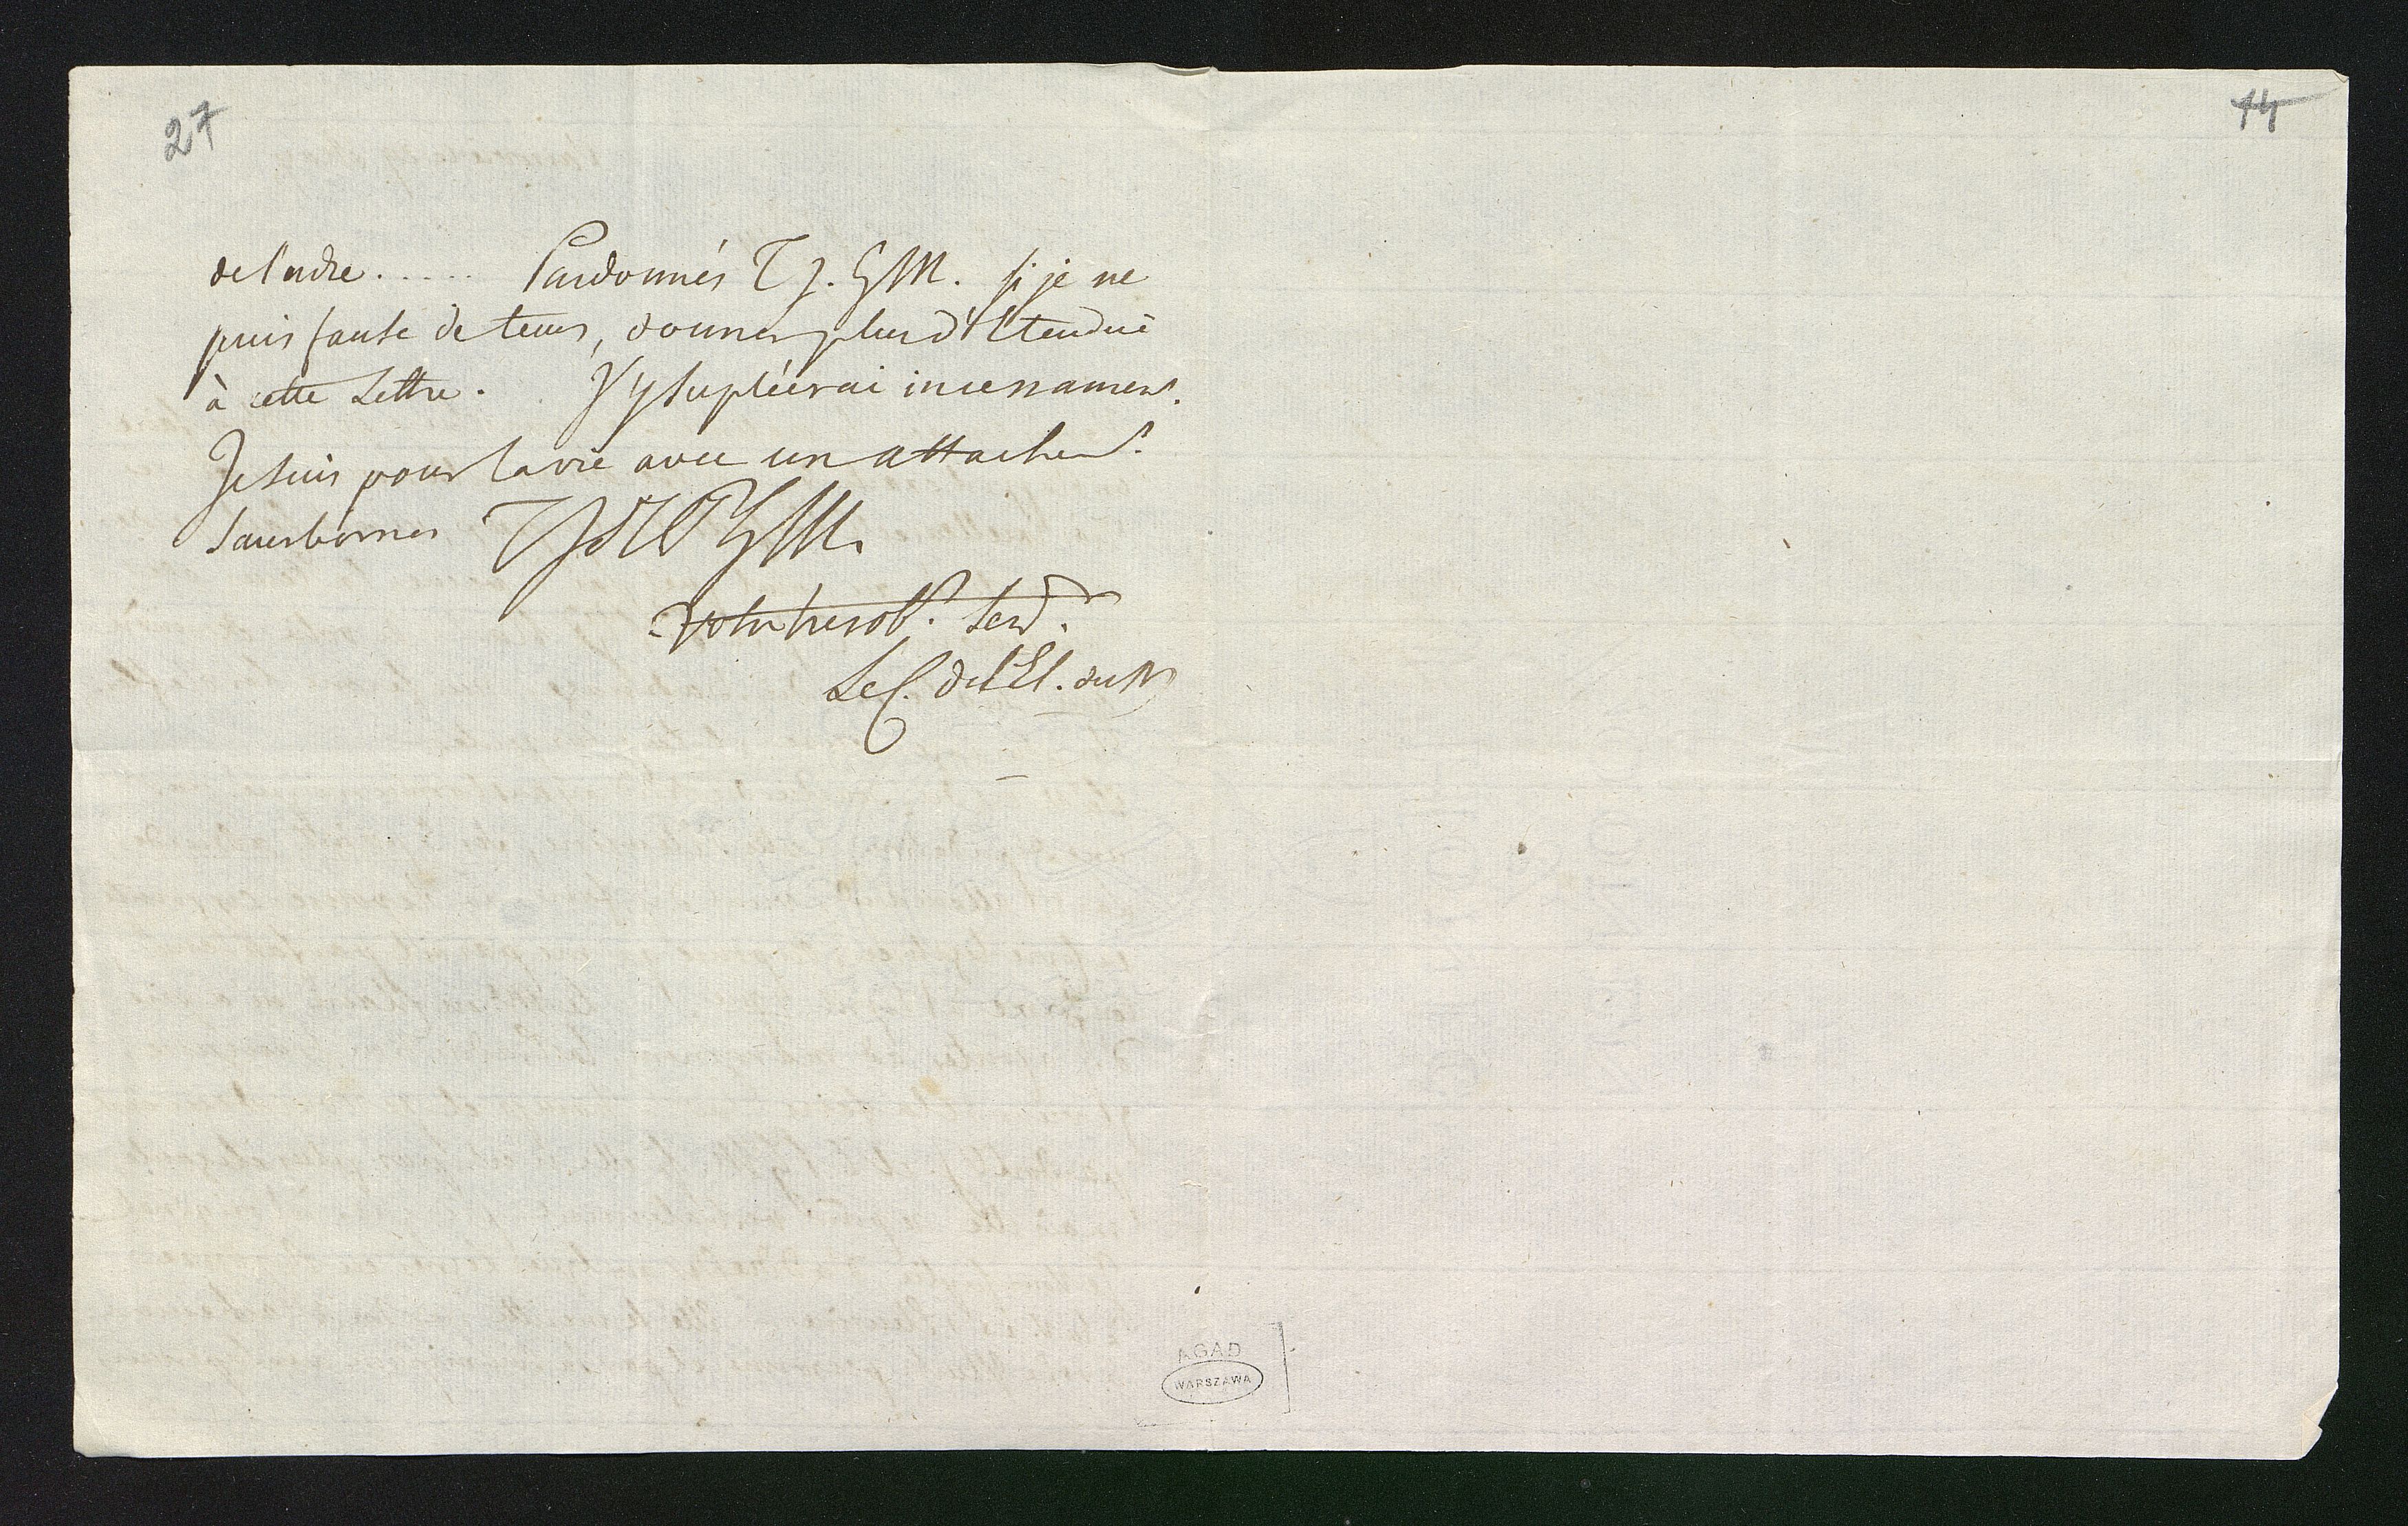 27
14
de l'ordre..... Pardonnés T J. G M. si je ne
puis faute de tems, donner plus d'Etenduë
à cette Lettre. J'y supléerai incessament.
Je suis pour la vie avec un attachemt.
sans bornes
votre tres ob. Serv.
Le C. de l'Et. du N
AGAD
WARSZAWA